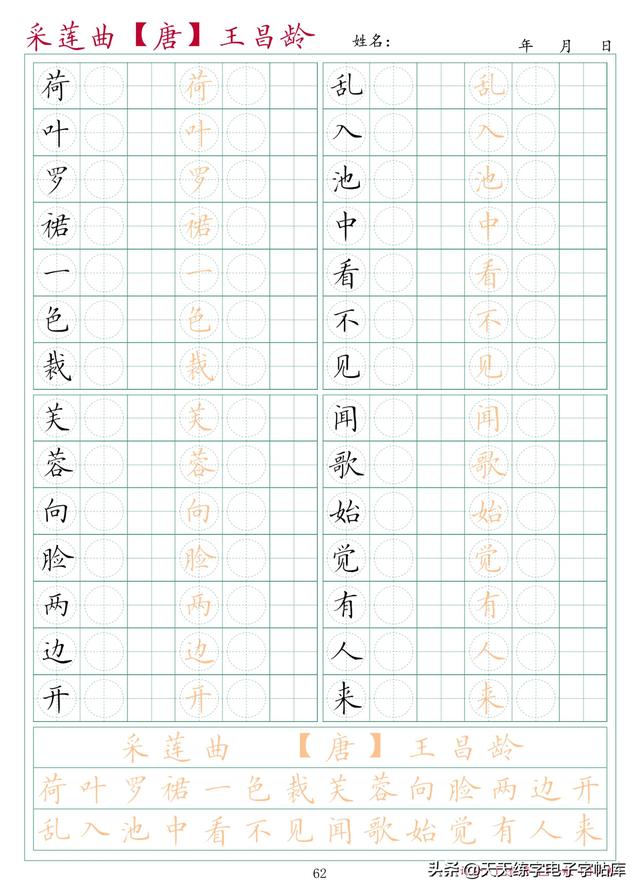 采莲曲【唐】王昌龄
姓名：
年 月 日
荷叶罗裙一色裁
荷叶罗裙一色裁
乱入池中看不见
乱入池中看不见
芙蓉向脸两边开
芙蓉向脸两边开
闻歌始觉有人来
闻歌始觉有人来
采莲曲 【唐】王昌龄
荷叶罗裙一色裁芙蓉向脸两边开
乱入池中看不见闻歌始觉有人来
62
头条@天天练字电子字帖库